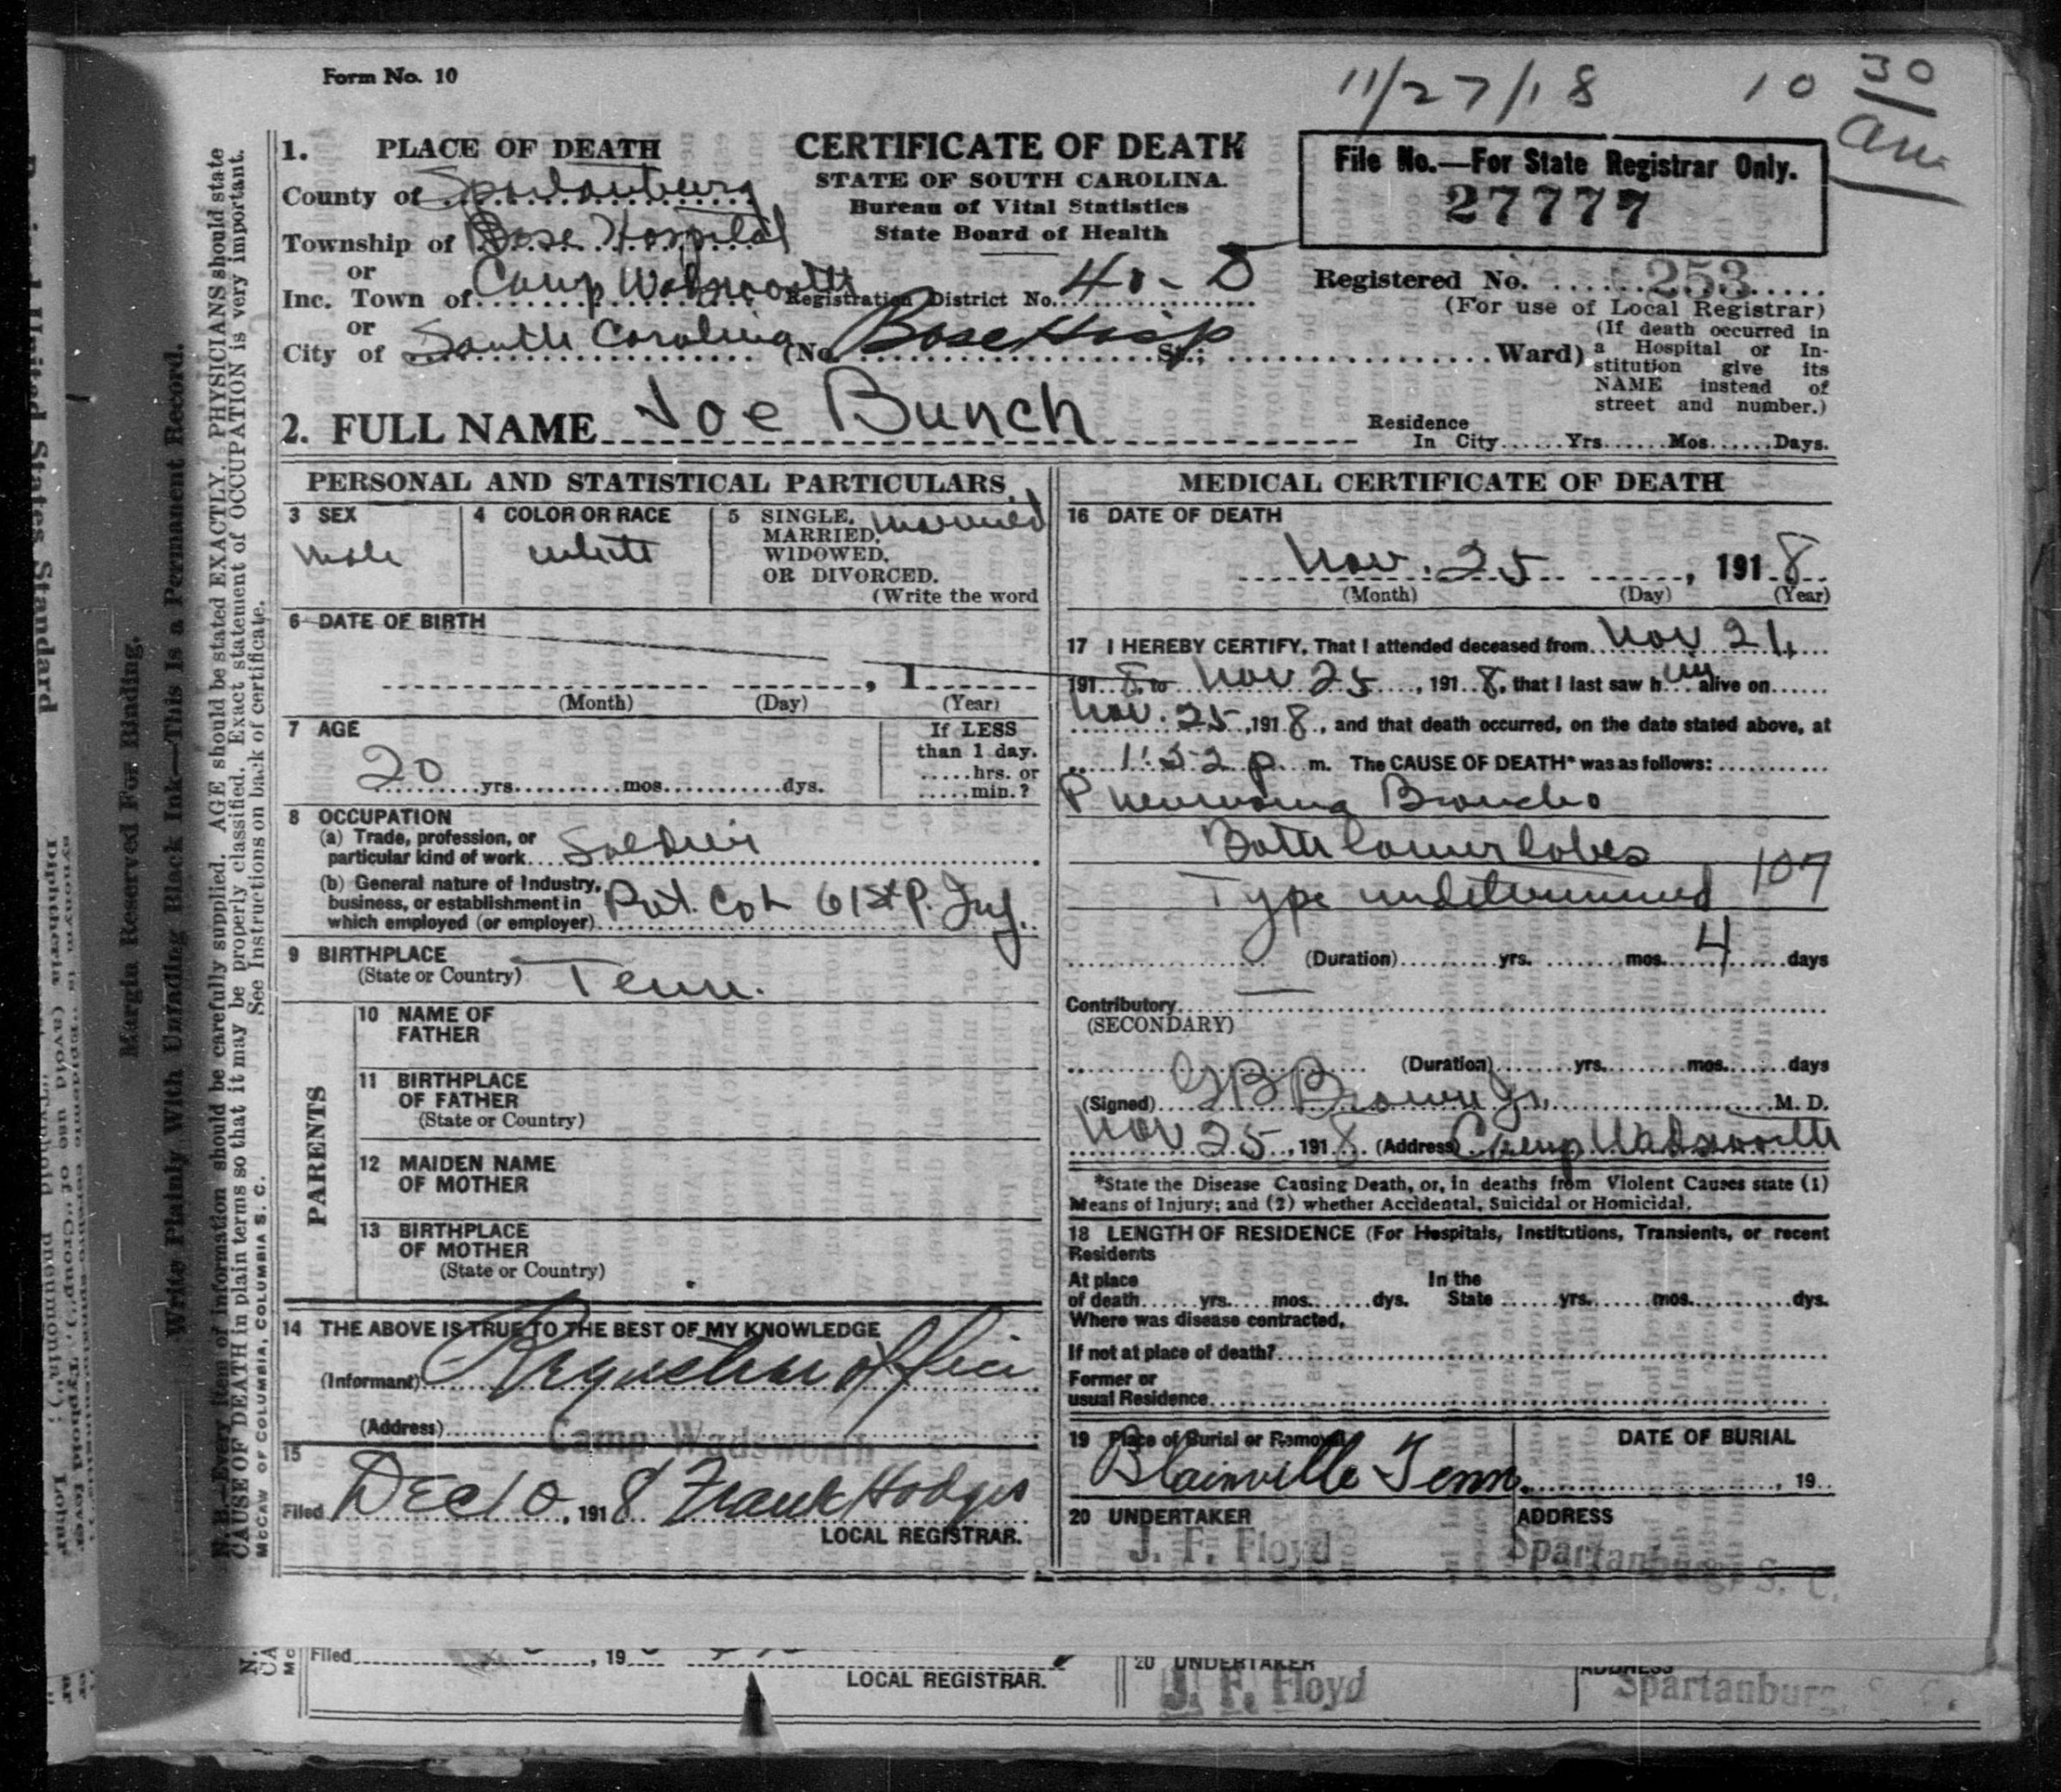 Form No. 10
11/27/18 10 30 am
1. PLACE OF DEATH
County of Spartanburg
Township of Base Hospital
or
Inc. Town of Camp Wadsworth
or
City of South Carolina
CERTIFICATE OF DEATH
STATE OF SOUTH CAROLINA.
Bureau of Vital Statistics
State Board of Health
Registration District No. 40-D
(No. Base Hosp St.; Ward)
File No.—For State Registrar Only.
27777
Registered No. 253
(For use of Local Registrar)
(If death occurred in
a Hospital or In-
stitution give its
NAME instead of
street and number.)
2. FULL NAME Joe Bunch
Residence
In City Yrs Mos Days.
PERSONAL AND STATISTICAL PARTICULARS.
3 SEX
male
4 COLOR OR RACE
white
5 SINGLE, married
MARRIED,
WIDOWED,
OR DIVORCED.
(Write the word
6 DATE OF BIRTH
, 1
(Month) (Day) (Year)
7 AGE
20 yrs. mos. dys.
If LESS
than 1 day.
hrs. or
min.?
8 OCCUPATION
(a) Trade, profession, or
particular kind of work Soldier
(b) General nature of Industry,
business, or establishment in
which employed (or employer) Pvt. Co L 61st P. Inf.
9 BIRTHPLACE
(State or Country) Tenn.
PARENTS
10 NAME OF
FATHER
11 BIRTHPLACE
OF FATHER
(State or Country)
12 MAIDEN NAME
OF MOTHER
13 BIRTHPLACE
OF MOTHER
(State or Country)
14 THE ABOVE IS TRUE TO THE BEST OF MY KNOWLEDGE
(Informant) Office
(Address) Camp Wadsworth
15
Filed Dec 10, 1918 Frank Hodges
LOCAL REGISTRAR.
MEDICAL CERTIFICATE OF DEATH
16 DATE OF DEATH
Nov. 25, 1918
(Month) (Day) (Year)
17 I HEREBY CERTIFY, That I attended deceased from Nov 21,
1918, to Nov 25, 1918, that I last saw him alive on
Nov. 25, 1918, and that death occurred, on the date stated above, at
1:52 p. m. The CAUSE OF DEATH* was as follows:
Pneumonia Broncho
Both lower lobes
Type undetermined 107
(Duration) yrs. mos. 4 days
Contributory —
(SECONDARY)
(Duration) yrs. mos. days
(Signed) Brown Jr. M. D.
Nov 25, 1918 (Address) Camp Wadsworth
*State the Disease Causing Death, or, in deaths from Violent Causes state (1)
Means of Injury; and (2) whether Accidental, Suicidal or Homicidal.
18 LENGTH OF RESIDENCE (For Hospitals, Institutions, Transients, or recent
Residents
At place In the
of death yrs. mos. dys. State yrs. mos. dys.
Where was disease contracted,
If not at place of death?
Former or
usual Residence
19 Place of Burial or Removal DATE OF BURIAL
Blainville Tenn. , 19
20 UNDERTAKER ADDRESS
J. F. Floyd Spartanburg, S. C.
Margin Reserved For Binding.
Write Plainly With Unfading Black Ink—This Is a Permanent Record.
N. B.—Every item of information should be carefully supplied. AGE should be stated EXACTLY. PHYSICIANS should state
CAUSE OF DEATH in plain terms so that it may be properly classified. Exact statement of OCCUPATION is very important.
See Instructions on back of certificate.
McCAW OF COLUMBIA, COLUMBIA S. C.
Filed , 19
LOCAL REGISTRAR.
20 UNDERTAKER ADDRESS
J. F. Floyd Spartanburg